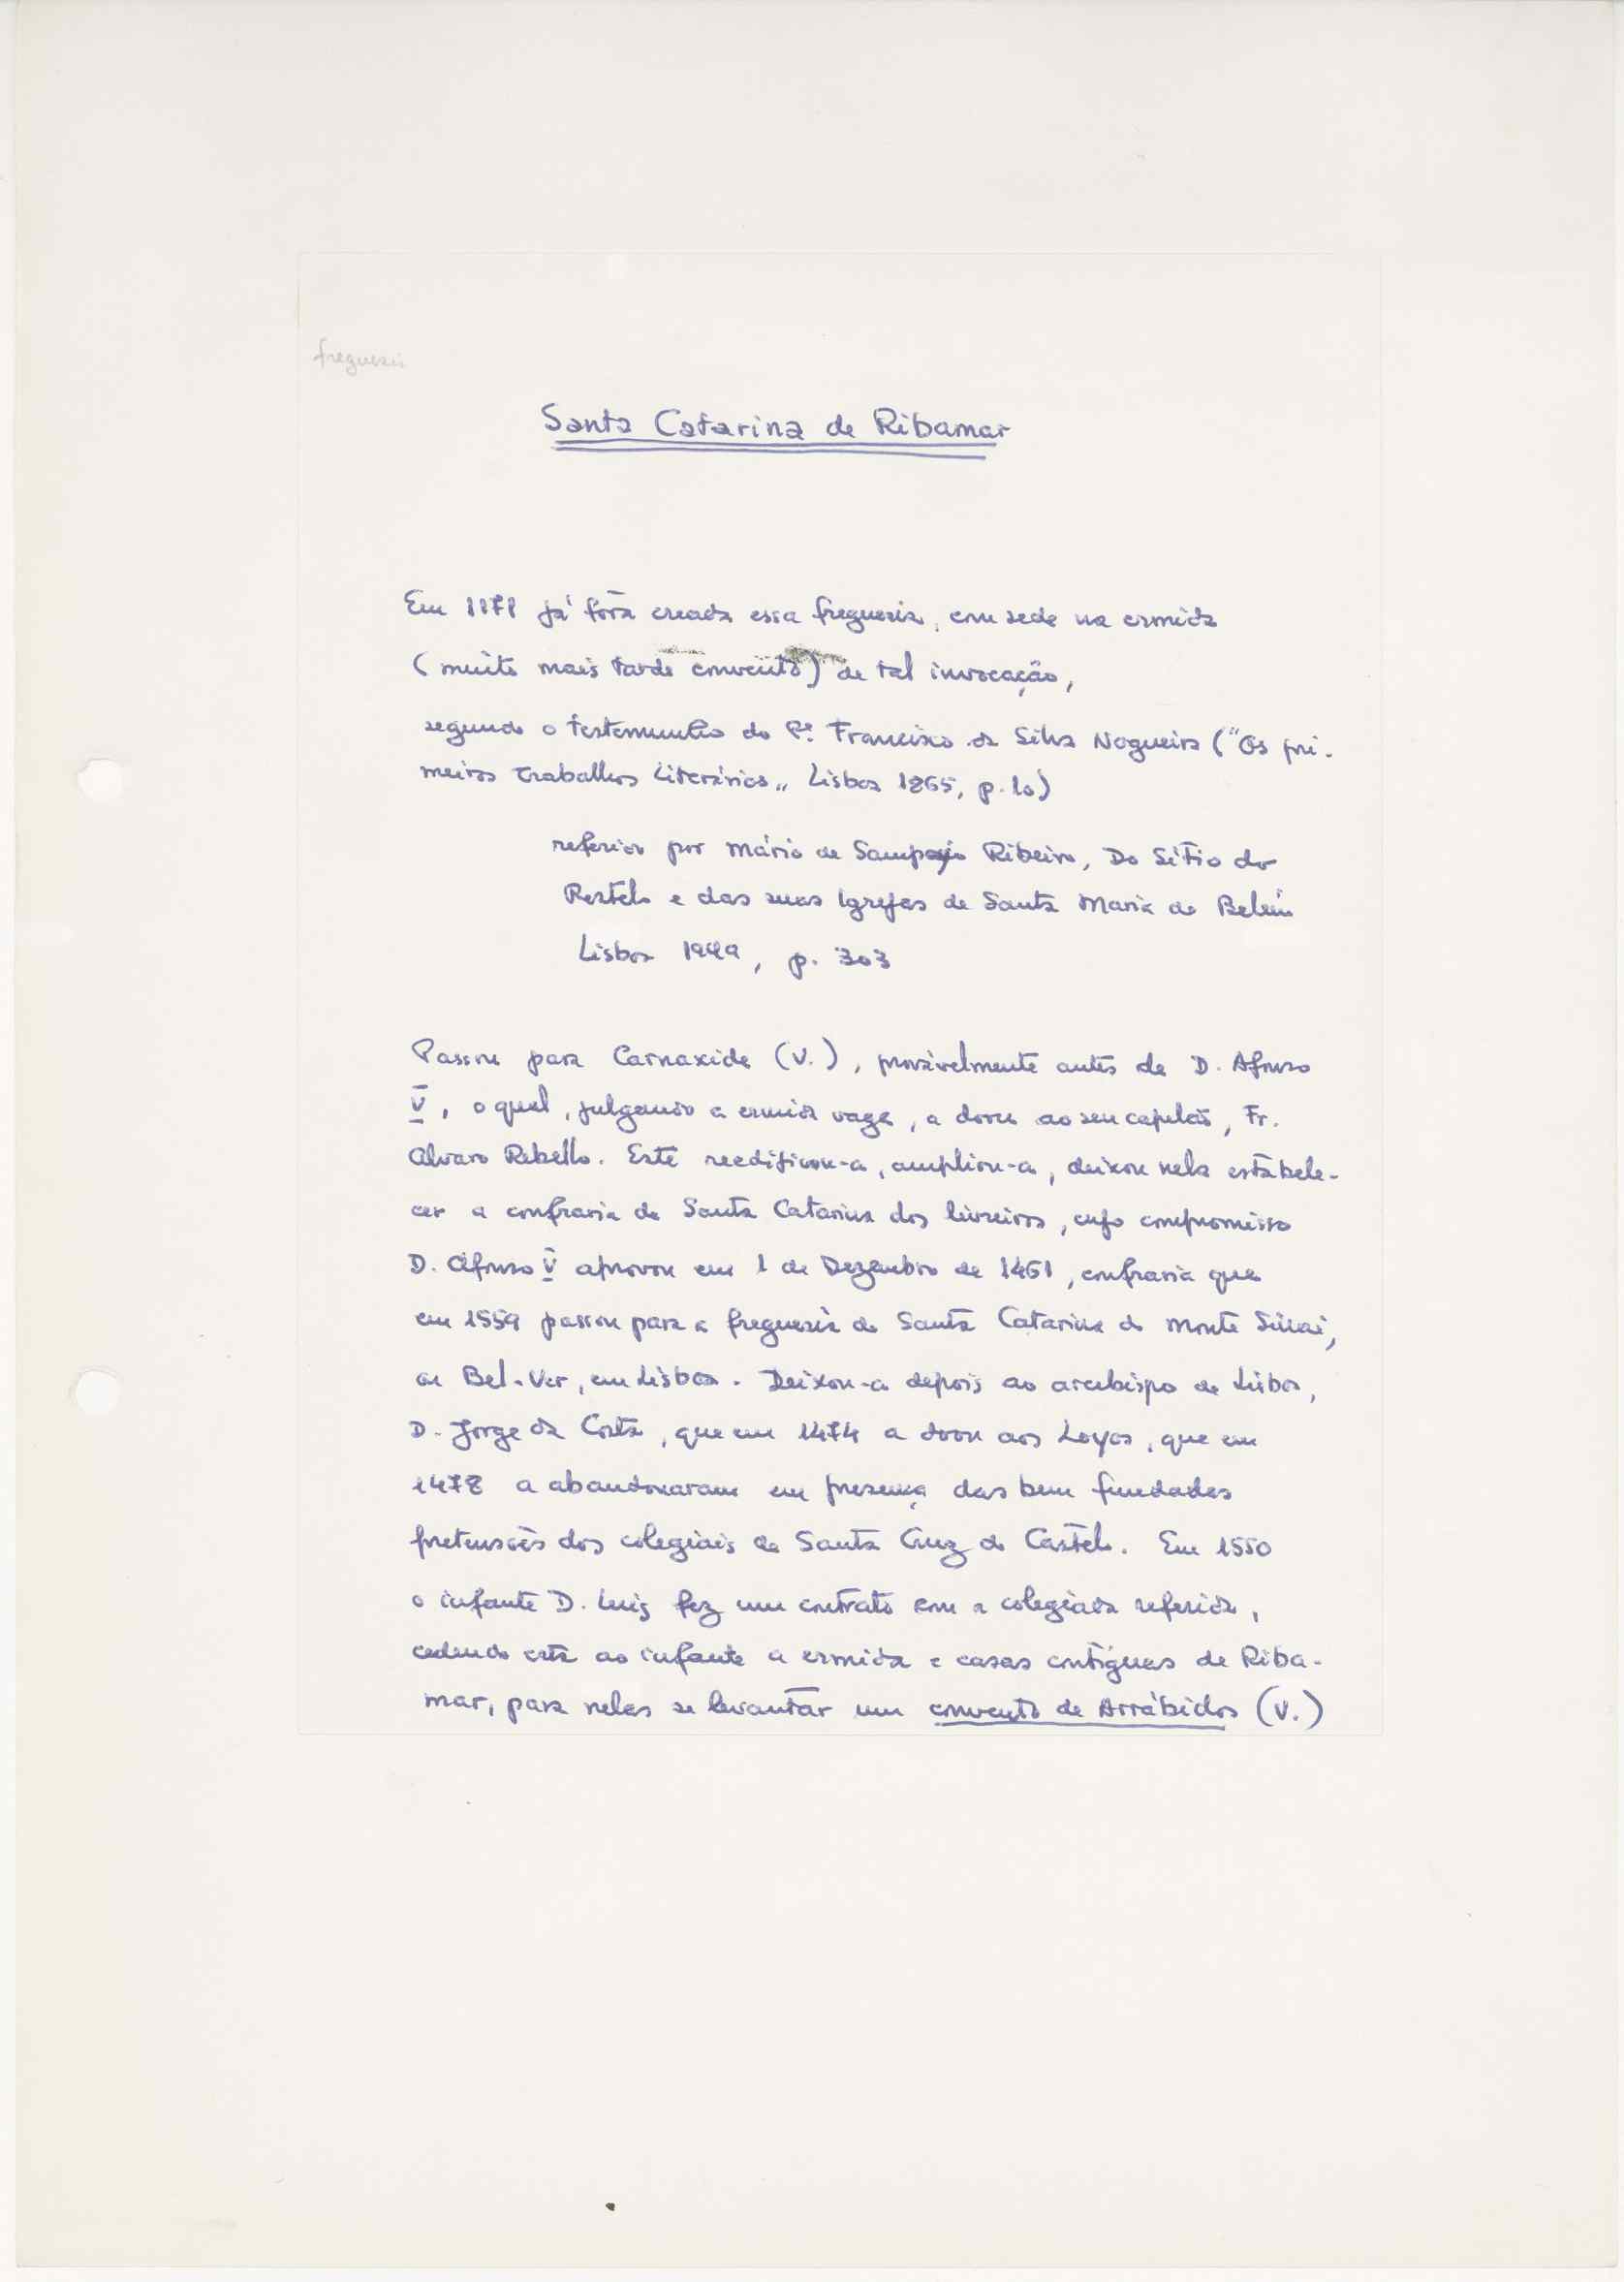 freguesia
Santa Catarina de Ribamar
Em 1171 já fôra creada essa freguesia, com sede na ermida
(muito mais tarde convento) de tal invocação,
segundo o testemunho do Pe. Francisco da Silva Nogueira ("Os pri-
meiros trabalhos literários„ Lisboa 1865, p. 10)
referido por Mário de Sampayo Ribeiro, Do Sítio do
Restelo e das suas Igrejas de Santa Maria de Belém
Lisboa 1949, p. 303
Passou para Carnaxide (V.), provàvelmente antes de D. Afonso
V, o qual, julgando a ermida vaga, a doou ao seu capelão, Fr.
Alvaro Rebello. Este reedificou-a, ampliou-a, deixou nela estabele-
cer a confraria de Santa Catarina dos livreiros, cujo compromisso
D. Afonso V aprovou em 1 de Dezembro de 1461, confraria que
em 1559 passou para a freguesia de Santa Catarina do Monte Sinai,
ou Bel-Ver, em Lisboa. Deixou-a depois ao arcebispo de Lisboa,
D. Jorge da Costa, que em 1474 a doou aos Loyos, que em
1478 a abandonaram em presença das bem fundadas
pretensões dos colegiais de Santa Cruz do Castelo. Em 1550
o infante D. Luiz fez um contrato com a colegiada referida,
cedendo esta ao infante a ermida e casas contíguas de Riba-
mar, para nelas se levantar um convento de Arrábidos (V.)